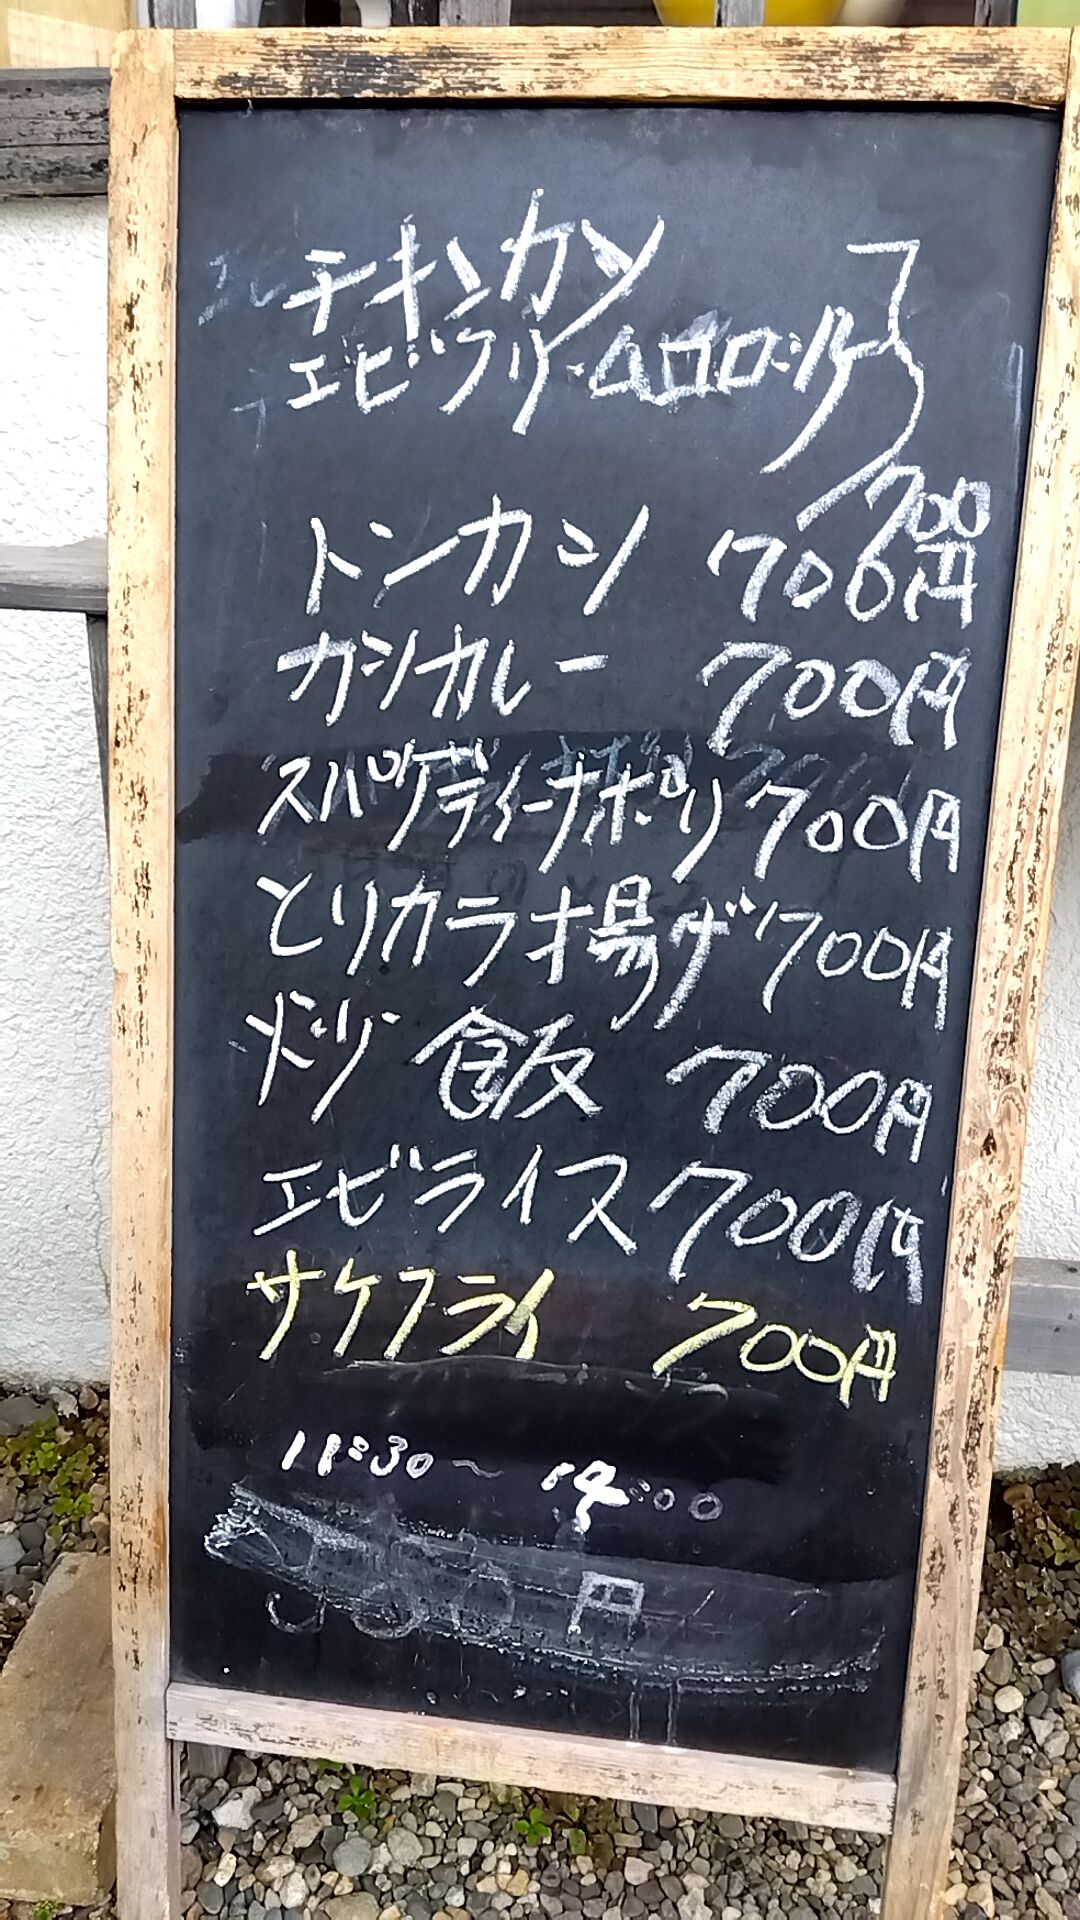 チキンカツ
エビクリームコロッケ 700
トンカツ 700円
カツカレー 700円
スパゲティーナポリ 700円
とりカラオ揚ゲ 700円
炒飯 700円
エビライス 700円
サケフライ 700円
11:30〜14:00
円